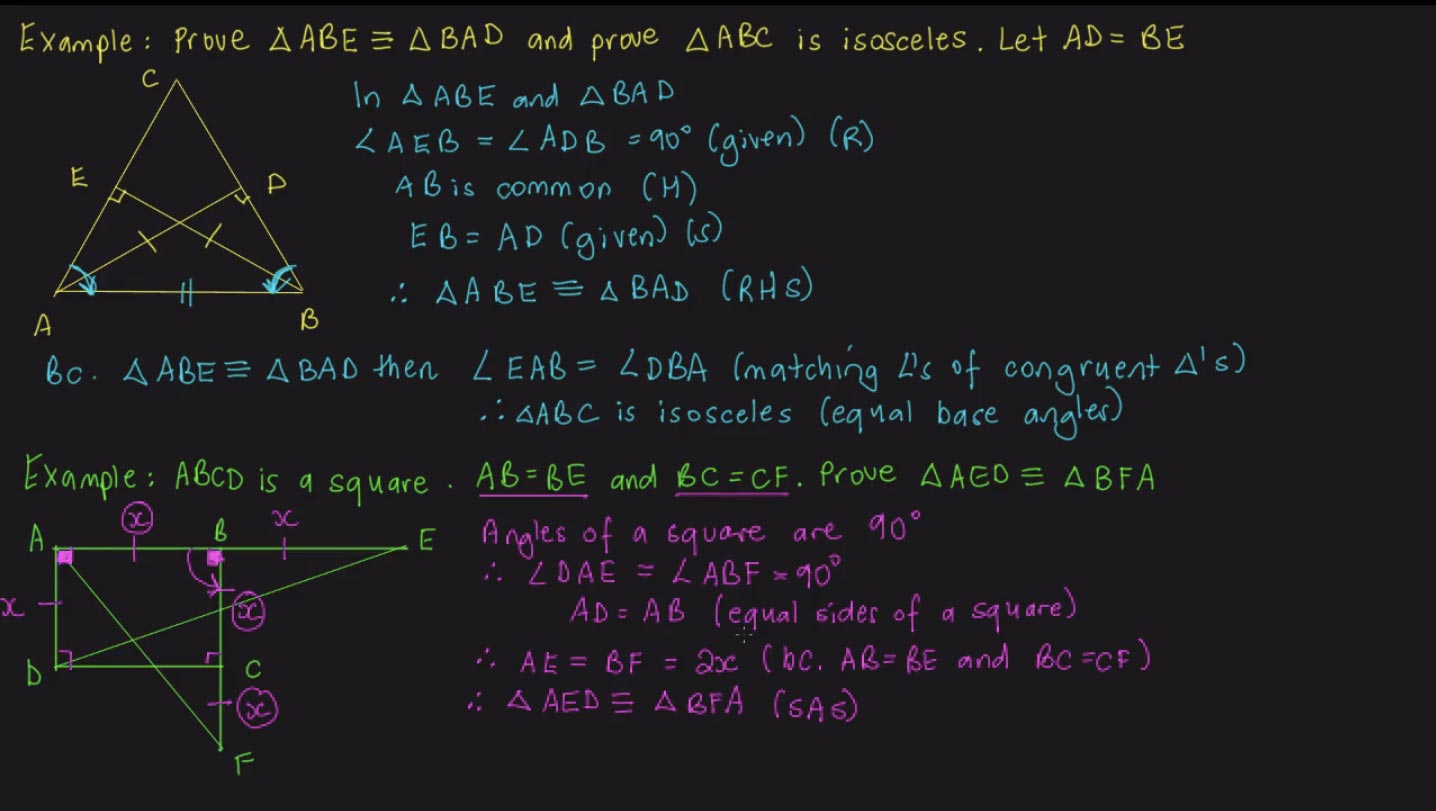 Example: Prove △ABE ≡ △BAD and prove △ABC is isosceles. Let AD = BE
C
E
D
A
B
In △ABE and △BAD
∠AEB = ∠ADB = 90° (given) (R)
AB is common (H)
EB = AD (given) (S)
∴ △ABE ≡ △BAD (RHS)
Bc. △ABE ≡ △BAD then ∠EAB = ∠DBA (matching ∠'s of congruent △'s)
∴ △ABC is isosceles (equal base angles)
Example: ABCD is a square. AB = BE and BC = CF. Prove △AED ≡ △BFA
x
x
A
B
E
x
x
D
C
x
F
Angles of a square are 90°
∴ ∠DAE = ∠ABF = 90°
AD = AB (equal sides of a square)
∴ AE = BF = 2x (bc. AB = BE and BC = CF)
∴ △AED ≡ △BFA (SAS)